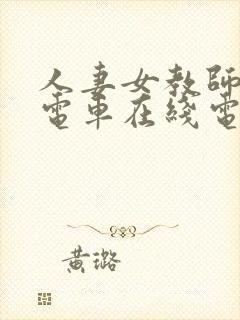 人妻女教師
電車在綫電
黄璐